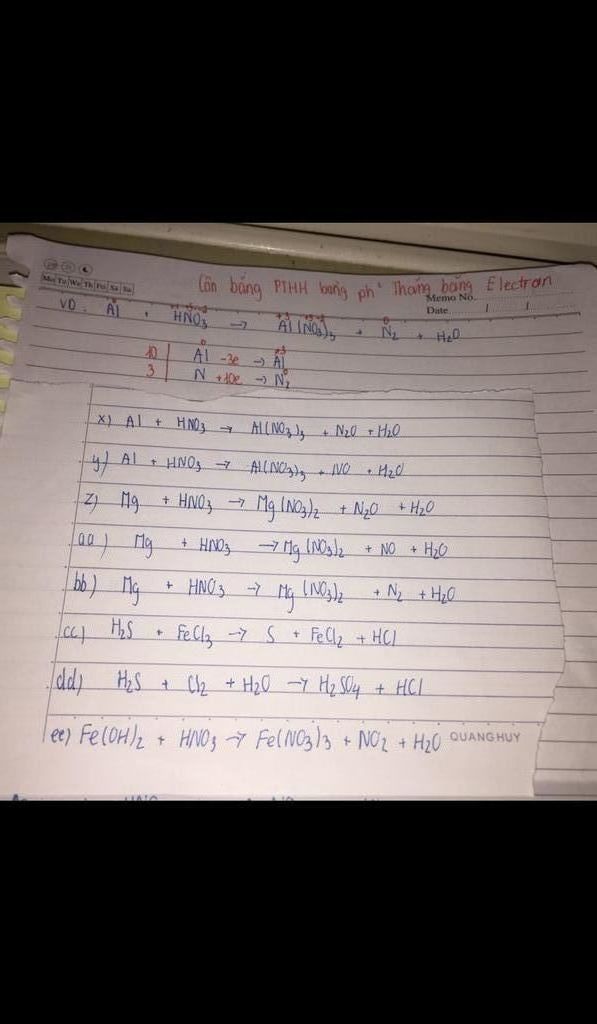 Cân bằng PTHH bằng ph² Thăng bằng Electron
Mo Tu We Th Fr Sa Su
Memo No.
Date / /
VD: Al + HNO₃ → Al(NO₃)₃ + N₂ + H₂O
10 | Al -3e → Al
3 | N +10e → N₂
x) Al + HNO₃ → Al(NO₃)₃ + N₂O + H₂O
y) Al + HNO₃ → Al(NO₃)₃ + NO + H₂O
z) Mg + HNO₃ → Mg(NO₃)₂ + N₂O + H₂O
aa) Mg + HNO₃ → Mg(NO₃)₂ + NO + H₂O
bb) Mg + HNO₃ → Mg(NO₃)₂ + N₂ + H₂O
cc) H₂S + FeCl₃ → S + FeCl₂ + HCl
dd) H₂S + Cl₂ + H₂O → H₂SO₄ + HCl
ee) Fe(OH)₂ + HNO₃ → Fe(NO₃)₃ + NO₂ + H₂O QUANG HUY